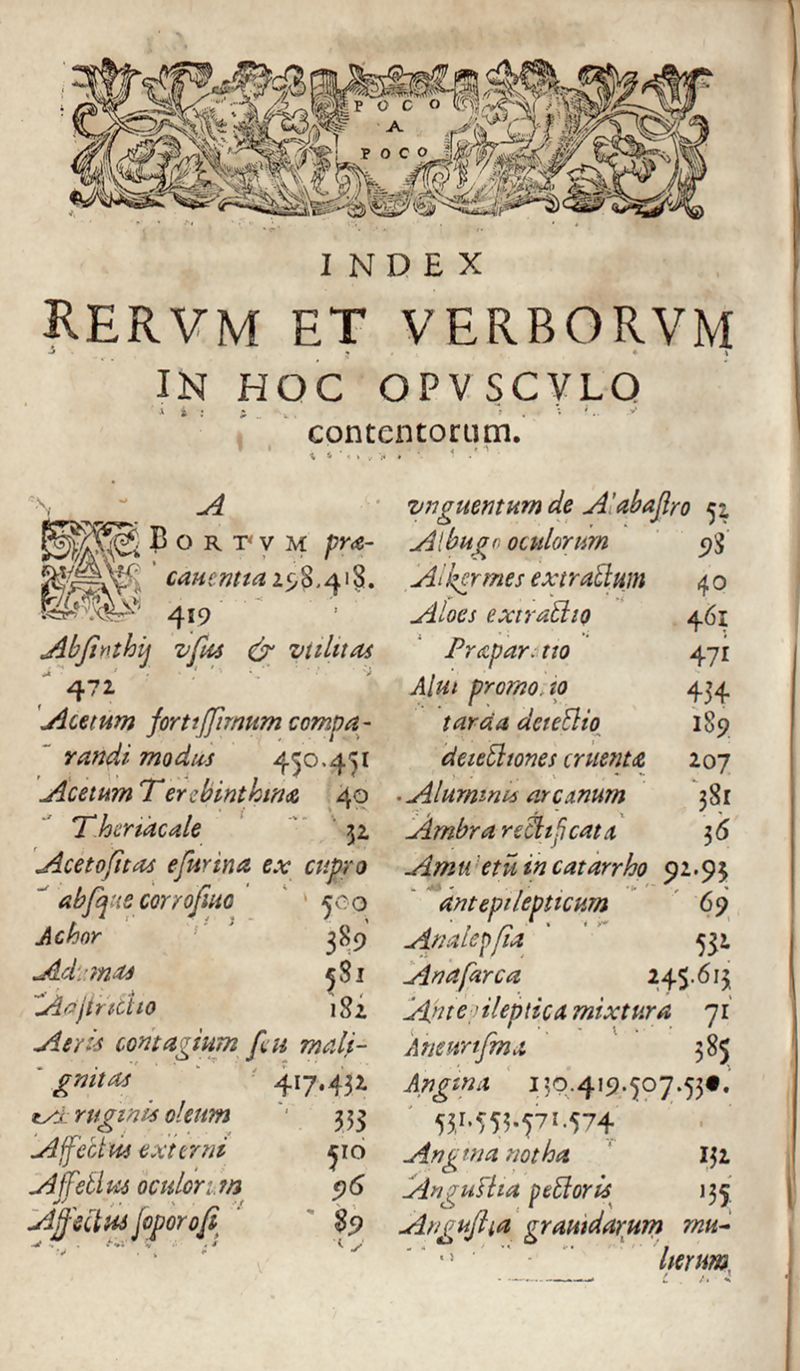 POCO
A
POCO
INDEX
RERVM ET VERBORVM
IN HOC OPVSCVLO
contentorum.
A
ABORTVM præ-
cauentia 298.418.
419
Absinthij vsus & vtilitas
472
Acetum fortissimum compa-
randi modus 450.451
Acetum Terebinthinæ 40
Theriacale 32
Acetositas esurina ex cupro
absque corrosiuo 500
Achor 389
Adamas 581
Adstrictio 182
Aeris contagium seu mali-
gnitas 417.432
Æruginis oleum 333
Affectus externi 510
Affectus oculorum 96
Affectus soporosi 89
vnguentum de Alabastro 52
Albugo oculorum 98
Alkermes extractum 40
Aloes extractio 461
Præparatio 471
Alui promotio 434
tarda deiectio 189
deiectiones cruentæ 207
Aluminis arcanum 381
Ambra rectificata 36
Amuletū in catarrho 92.93
antepilepticum 69
Analepsia 532
Anasarca 245.613
Antepileptica mixtura 71
Aneurisma 385
Angina 130.419.507.
531.553.571.574
Angina notha 132
Angustia pectoris 135
Angustia grauidarum mu-
lierum